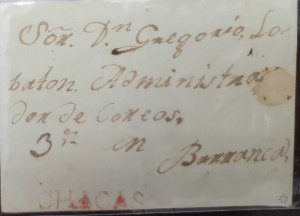 Sõr. Dn Gregorio Lo-
baton Administra
dor de Correos,
3 en
Barranca
CHACAS